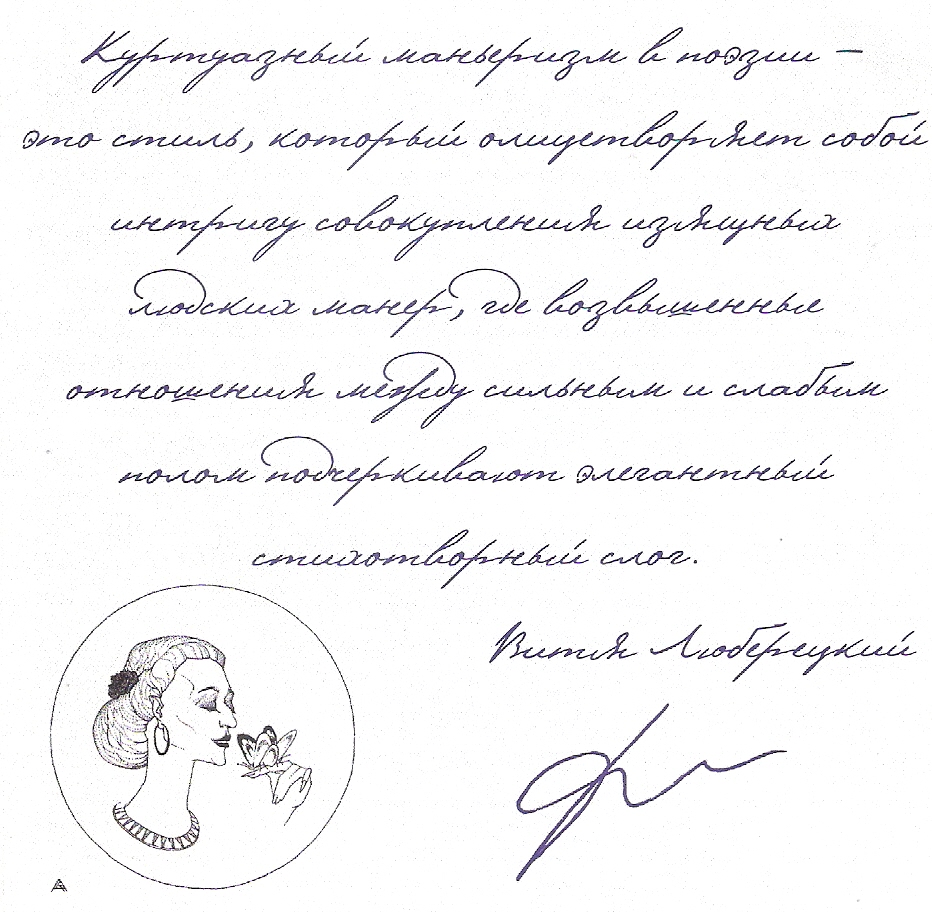 Куртуазный маньеризм в поэзии –
это стиль, который олицетворяет собой
интригу совокупления изящных
людских манер, где возвышенные
отношения между сильным и слабым
полом подчеркивают элегантный
стихотворный слог.
Витя Люберецкий